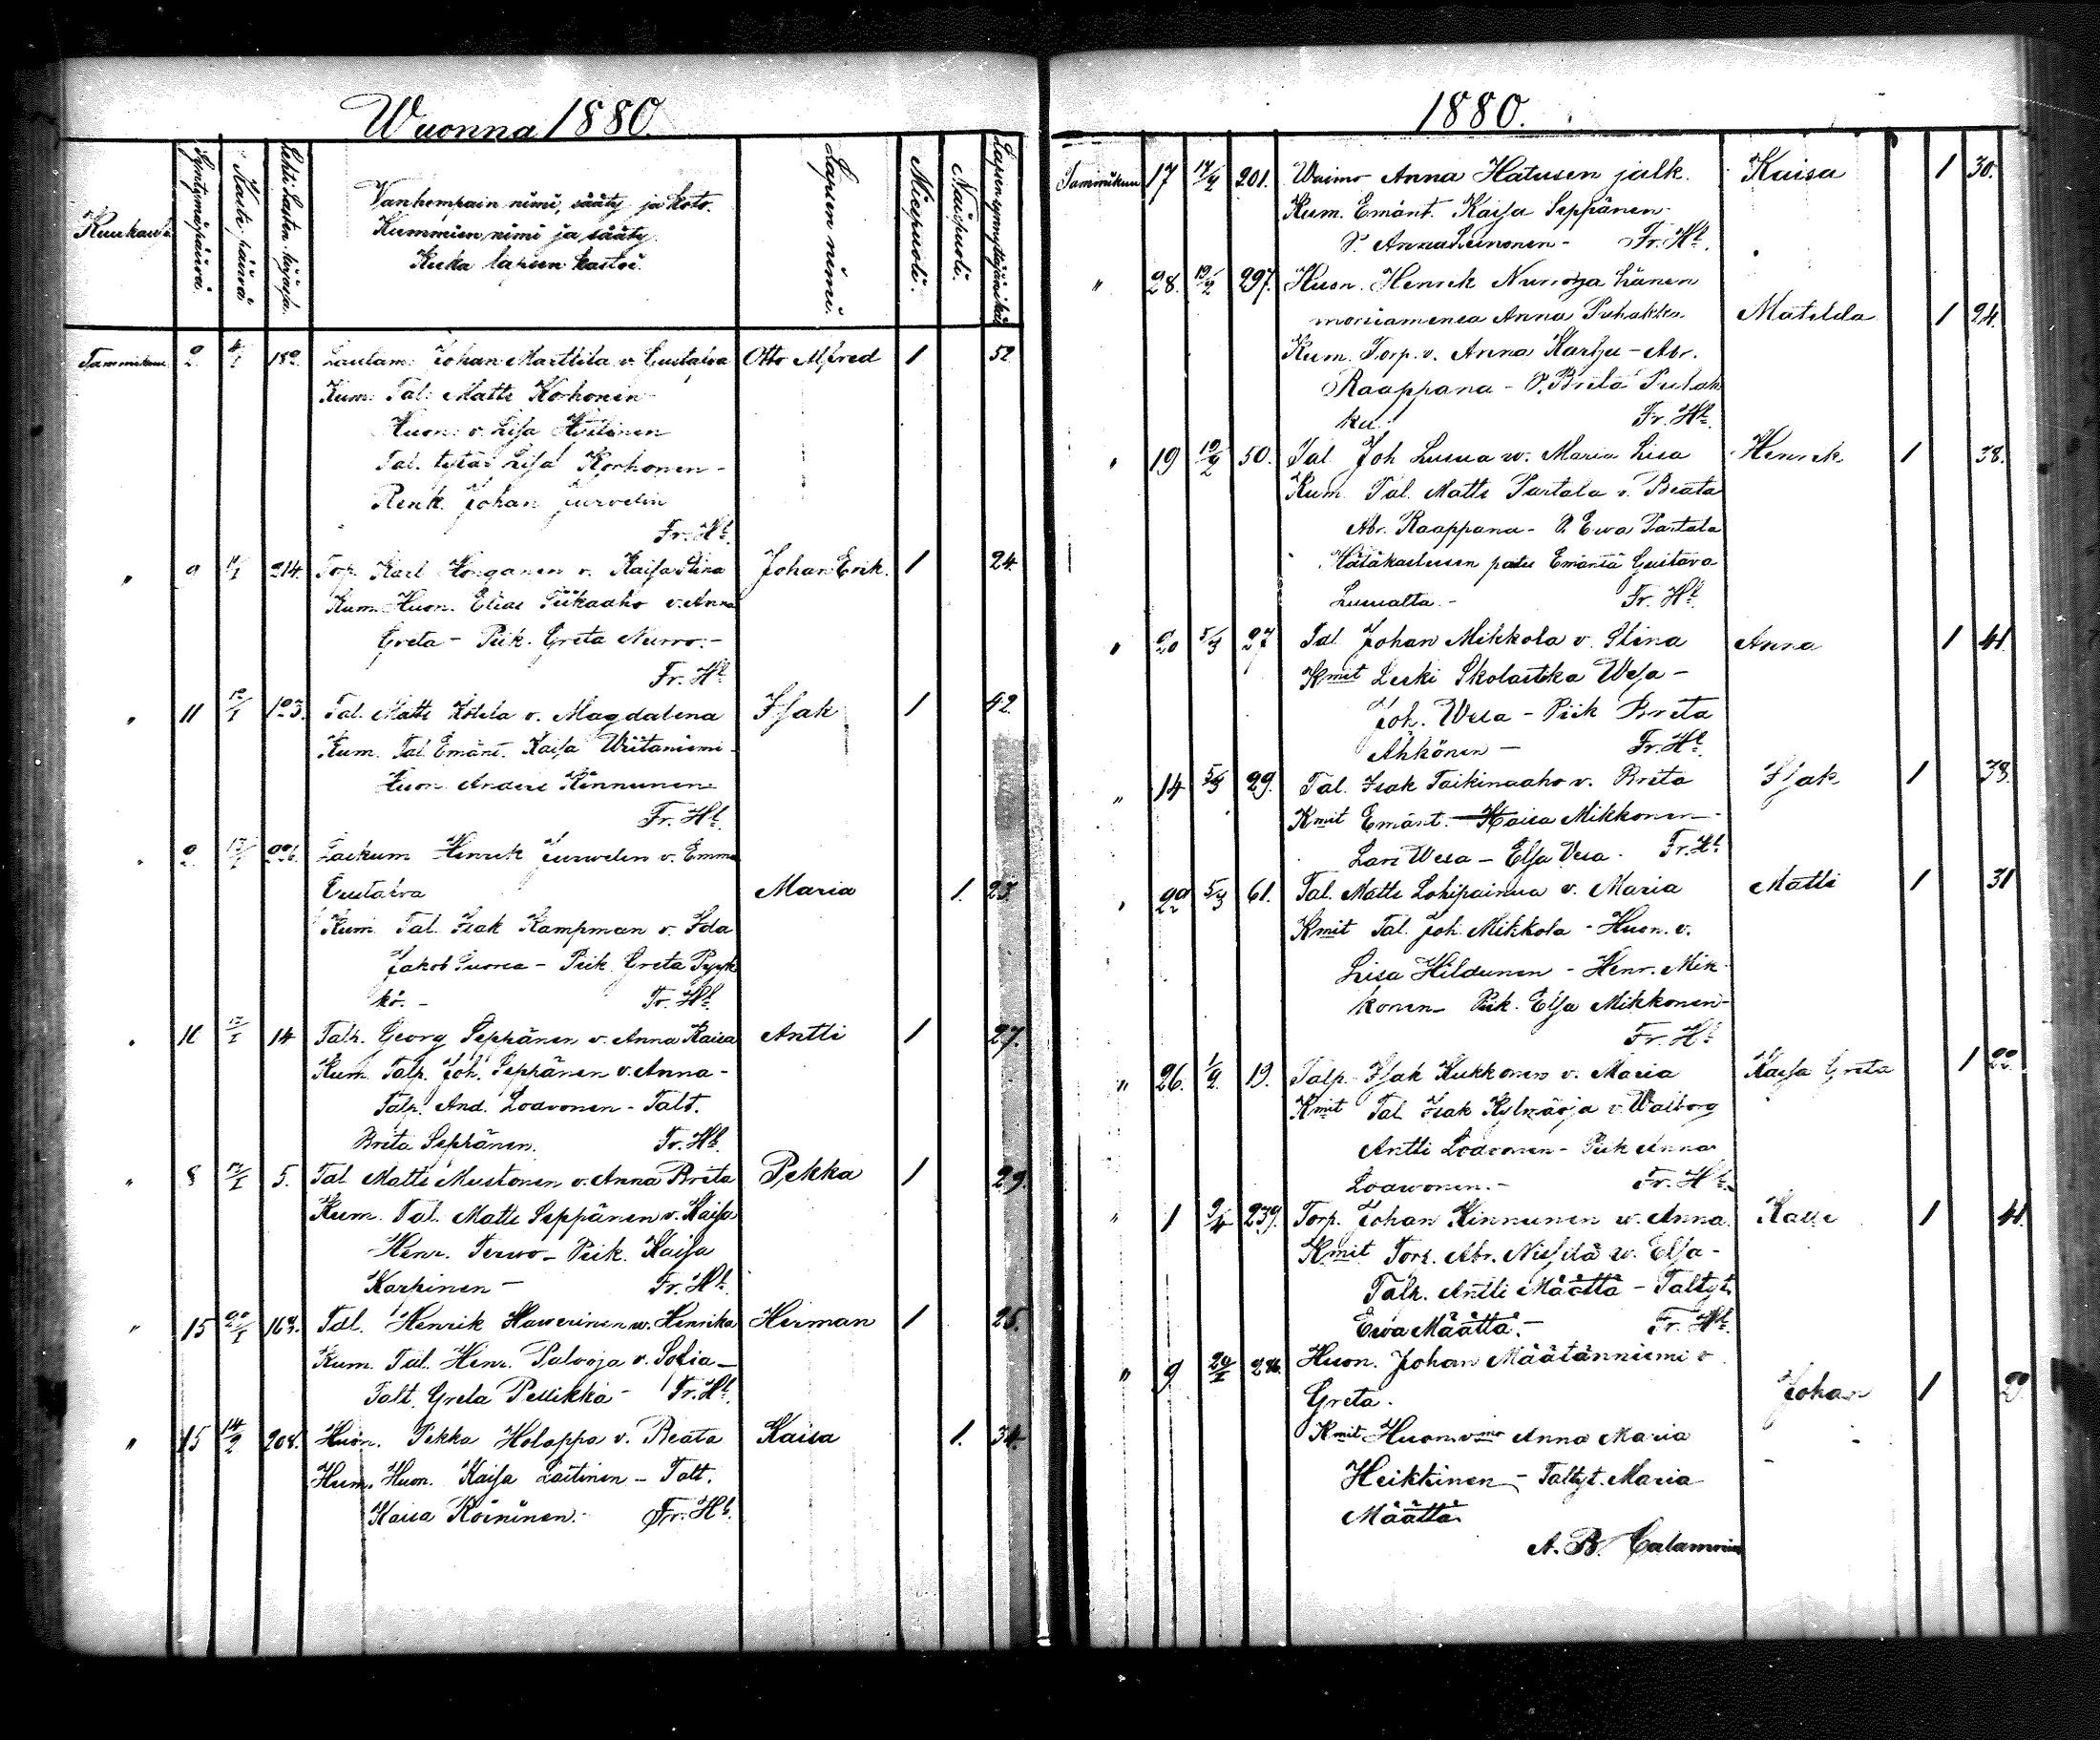 Wuonna 1880.
Kuukausi.
Syntymäpäivä.
Kaste päivä
Lehti lasten kirjassa.
Vanhempain nimi, sääty ja koto.
Kummien nimi ja sääty.
Kuka lapsen kastoi.
Lapsen nimi.
Miespuoli.
Naispuoli.
Tammikuu 2. 4/I 182. Lautam: Johan Marttila v. Gustafva Otto Alfred 1 52
Kum: Tal: Matti Korhonen
Huon: v. Lisa
Tal. tytär Lisa Korhonen -
Renk. Johan Jurvelin
Fr. Hl.
" 9 214. Torp. Karl Honganen v. Kaisa Stina Johan Erik. 1 24.
Kum. Huon. Elias Piikaaho v. Anna
Greta - Piik. Greta Nurro. -
Fr. Hl.
" 11 12/I 123. Tal. Matti v. Magdalena Isak 1 42.
Kum. Tal. Emänt. Kaisa Wiitaniemi -
Huon Anders Kinnunen
Fr. Hl.
" 2. 226. Henrik Jurvelin v. Emma
Gustafva Maria 1. 23.
Kum. Tal. Isak Kampman v. Ida
Jakob Suorsa - Piik Greta Pyyk
kö. - Fr. Hl.
" 16 14 Talp. Georg Seppänen v. Anna Kaisa Antti 1 27.
Kum. Talp. Joh. Seppänen v. Anna -
Talp. And. Loavonen - Talt.
Brita Seppänen. Fr. Hl.
" 8 5. Tal Matti Mustonen v. Anna Brita Pekka 1 29.
Kum. Tal. Matti Seppänen v. Kaisa
Henr. Terwo - Piik. Kaisa
Karpinen - Fr. Hl.
" 15 20/I 168. Tal. Henrik Hawerinen w. Henrika Herman 1 25.
Kum. Tal. Henr. Palvoja v. Sofia -
Talt. Greta Pellikka - Fr. Hl.
" 15 14/2 208. Huon. Pekka Holappa v. Beata Kaisa 1. 34.
Kum. Huon. Kaisa Laitinen - Talt.
Kaisa Röininen. - Fr. Hl.
1880.
Tammikuu 17 201. Waimo Anna Hatusen jälk. Kaisa 1 30.
Kum. Emänt. Kaisa Seppänen -
P. Anna Leinonen - Fr. Hl.
" 28. 19/2 297. Huon. Henrik Nurro ja hänen
morsiamensa Anna Puhakka. Matilda 1 24.
Kum. Torp. v. Anna Karhu - Abr.
Raappana - P. Brita Puhak
ka. Fr. Hl.
" 19 19/2 50. Tal. Joh Lusua w. Maria Lisa Henrik 1 38.
Kum. Tal. Matti Partala v. Beata
Abr. Raappana - P. Ewa Partala
Hätäkasteesen Emäntä Gustava
Lusualta. - Fr. Hl.
" 20 5/3 27 Tal Johan Mikkola v. Stina Anna 1 41.
Kmit Leski Skolastika Wesa -
Joh. Wesa - Piik Brita
Ahkönen - Fr. Hl.
" 14 5/3 29. Tal. Isak Taikinaaho v. Brita Isak 1 38.
Kmit Emänt. Kaisa Mikkonen -
Lars Wesa - Elsa Vesa. Fr. Hl.
" 22 5/3 61. Tal. Matti Lohipainua v. Maria Matti 1 31
Kmit Tal. Joh. Mikkola - Huon. v.
Lisa Hildunen - Henr. Mik
konen - Piik. Elsa Mikkonen -
Fr. Hl.
" 26. 1/2. 19. Talp. Isak Kukkonen v. Maria Kaisa Greta 1 22.
Kmit Tal Isak Kylmäoja v. Walborg
Antti Loavonen - Piik Anna
Loavonen. - Fr. Hl.
" 1 9/4 239. Torp. Johan Kinnunen w. Anna. Kalle 1 41.
Kmit Torp. Abr. Niskilä w. Elsa -
Talp. Antti Määttä - Taltyt.
Ewa Määttä. - Fr. Hl.
" 9 29/I 286. Huon. Johan Määtänniemi v.
Greta. Johan 1
Kmit Huon. vmo Anna Maria
Heikkinen - Taltyt. Maria
Määttä
A. B. Calamnius